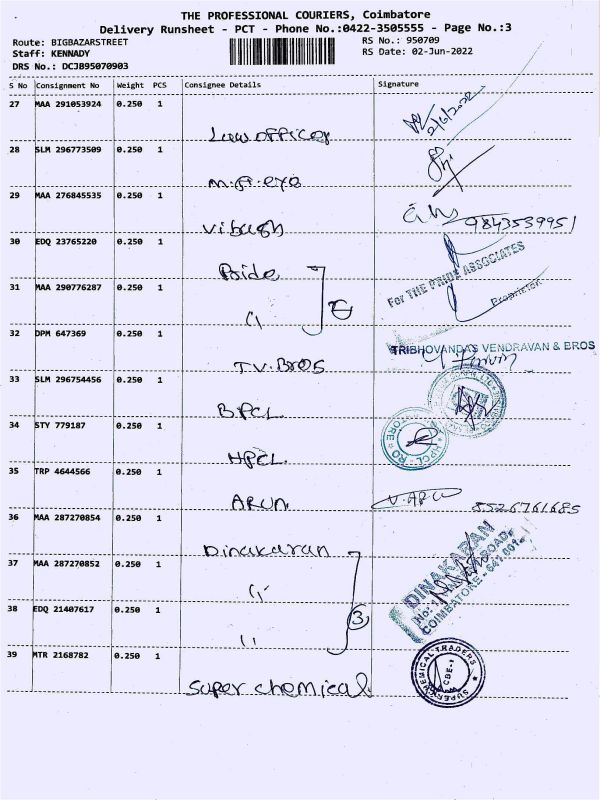 THE PROFESSIONAL COURIERS, Coimbatore
Delivery Runsheet - PCT - Phone No.:0422-3505555 - Page No.:3
Route: BIGBAZARSTREET
Staff: KENNADY
DRS No.: DCJB95070903
RS No.: 950709
RS Date: 02-Jun-2022
S No Consignment No Weight PCS Consignee Details Signature
27 MAA 291053924 0.250 1
Law officer
2/6/2022
28 SLM 296773509 0.250 1
m.p. eye
29 MAA 276845535 0.250 1
Vibagh
9843539951
30 EDQ 23765220 0.250 1
Pride
For THE PRIDE ASSOCIATES
Proprietor
31 MAA 290776287 0.250 1
"
32 DPM 647369 0.250 1
T.V. Bros
TRIBHOVANDAS VENDRAVAN & BROS
33 SLM 296754456 0.250 1
BPCL
34 STY 779187 0.250 1
HPCL
35 TRP 4644566 0.250 1
ARUN
V. ARU
8526761685
36 MAA 287270854 0.250 1
Dinakaran
DINAKARAN
COIMBATORE - 641 001.
37 MAA 287270852 0.250 1
"
38 EDQ 21407617 0.250 1
"
3
39 MTR 2168782 0.250 1
Super chemical
SUPER CHEMICAL TRADERS
CBE-1